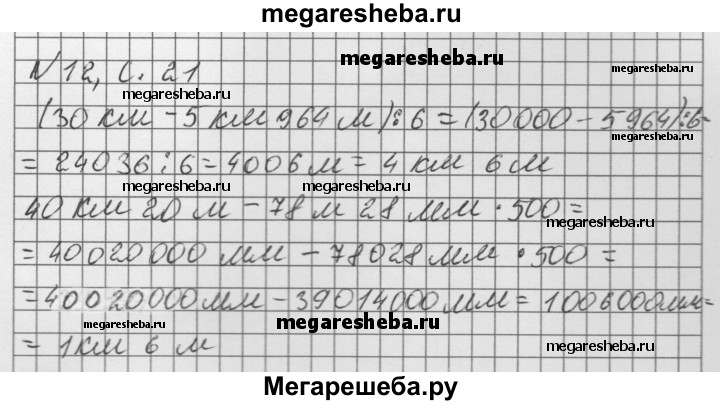 megaresheba.ru
N 12, с. 21
megaresheba.ru
megaresheba.ru
megaresheba.ru
(30 км - 5 км 964 м) : 6 = (30000 - 5964) : 6 =
megaresheba.ru
= 24036 : 6 = 4006 м = 4 км 6 м
megaresheba.ru
megaresheba.ru
40 км 20 м - 78 м 28 мм · 500 =
megaresheba.ru
= 40020000 мм - 78028 мм · 500 =
= 40020000 мм - 39014000 мм = 1006000 мм =
megaresheba.ru
megaresheba.ru
= 1 км 6 м
megaresheba.ru
Мегарешеба.ру